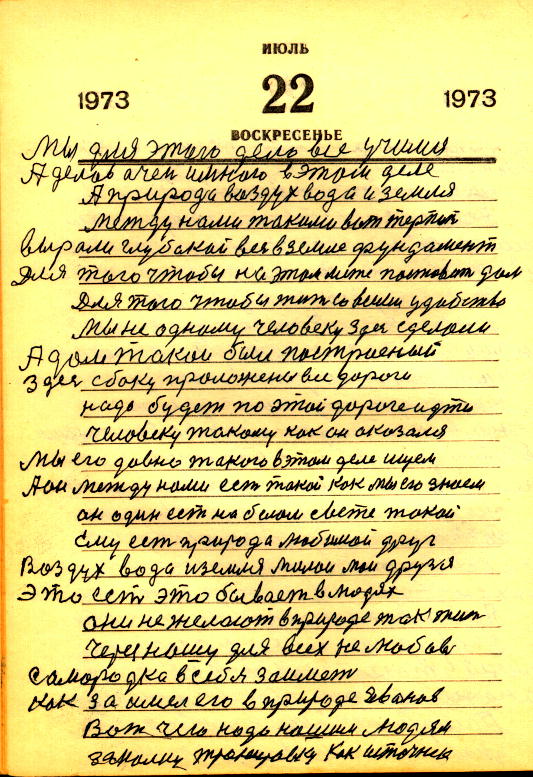 ИЮЛЬ
1973 22 1973
ВОСКРЕСЕНЬЕ
Мы для этого дела все учимся
А делов очен имного вэтом деле
Априрода воздух вода и земля
между нами такими вот терпит
вырали глубакой веявземле фундамент
Для того чтобы на этом месте поставит дом
Для того чтобы жит совсеми удобство
Мы не одному человеку здея сделоли
А дом такои был построеный
Здея сбоку проложена вся дорога
надо будет по этой дороге идти
человеку такому как он оказался
Мы его давно такого вэтом деле ищем
Аон между нами ест такой как мы его знаем
он один ест на белом свете такой
Ему ест природа любимой друг
Воздух вода иземля милои мои друзя
Это ест это бывает влюдях
они не желают вприроде так жит
Через нашу для всех не любов
самородка всебя заимет
как за имел его в природе Иванов
Вот чего надо нашим людям
заналку тренировку как источнек